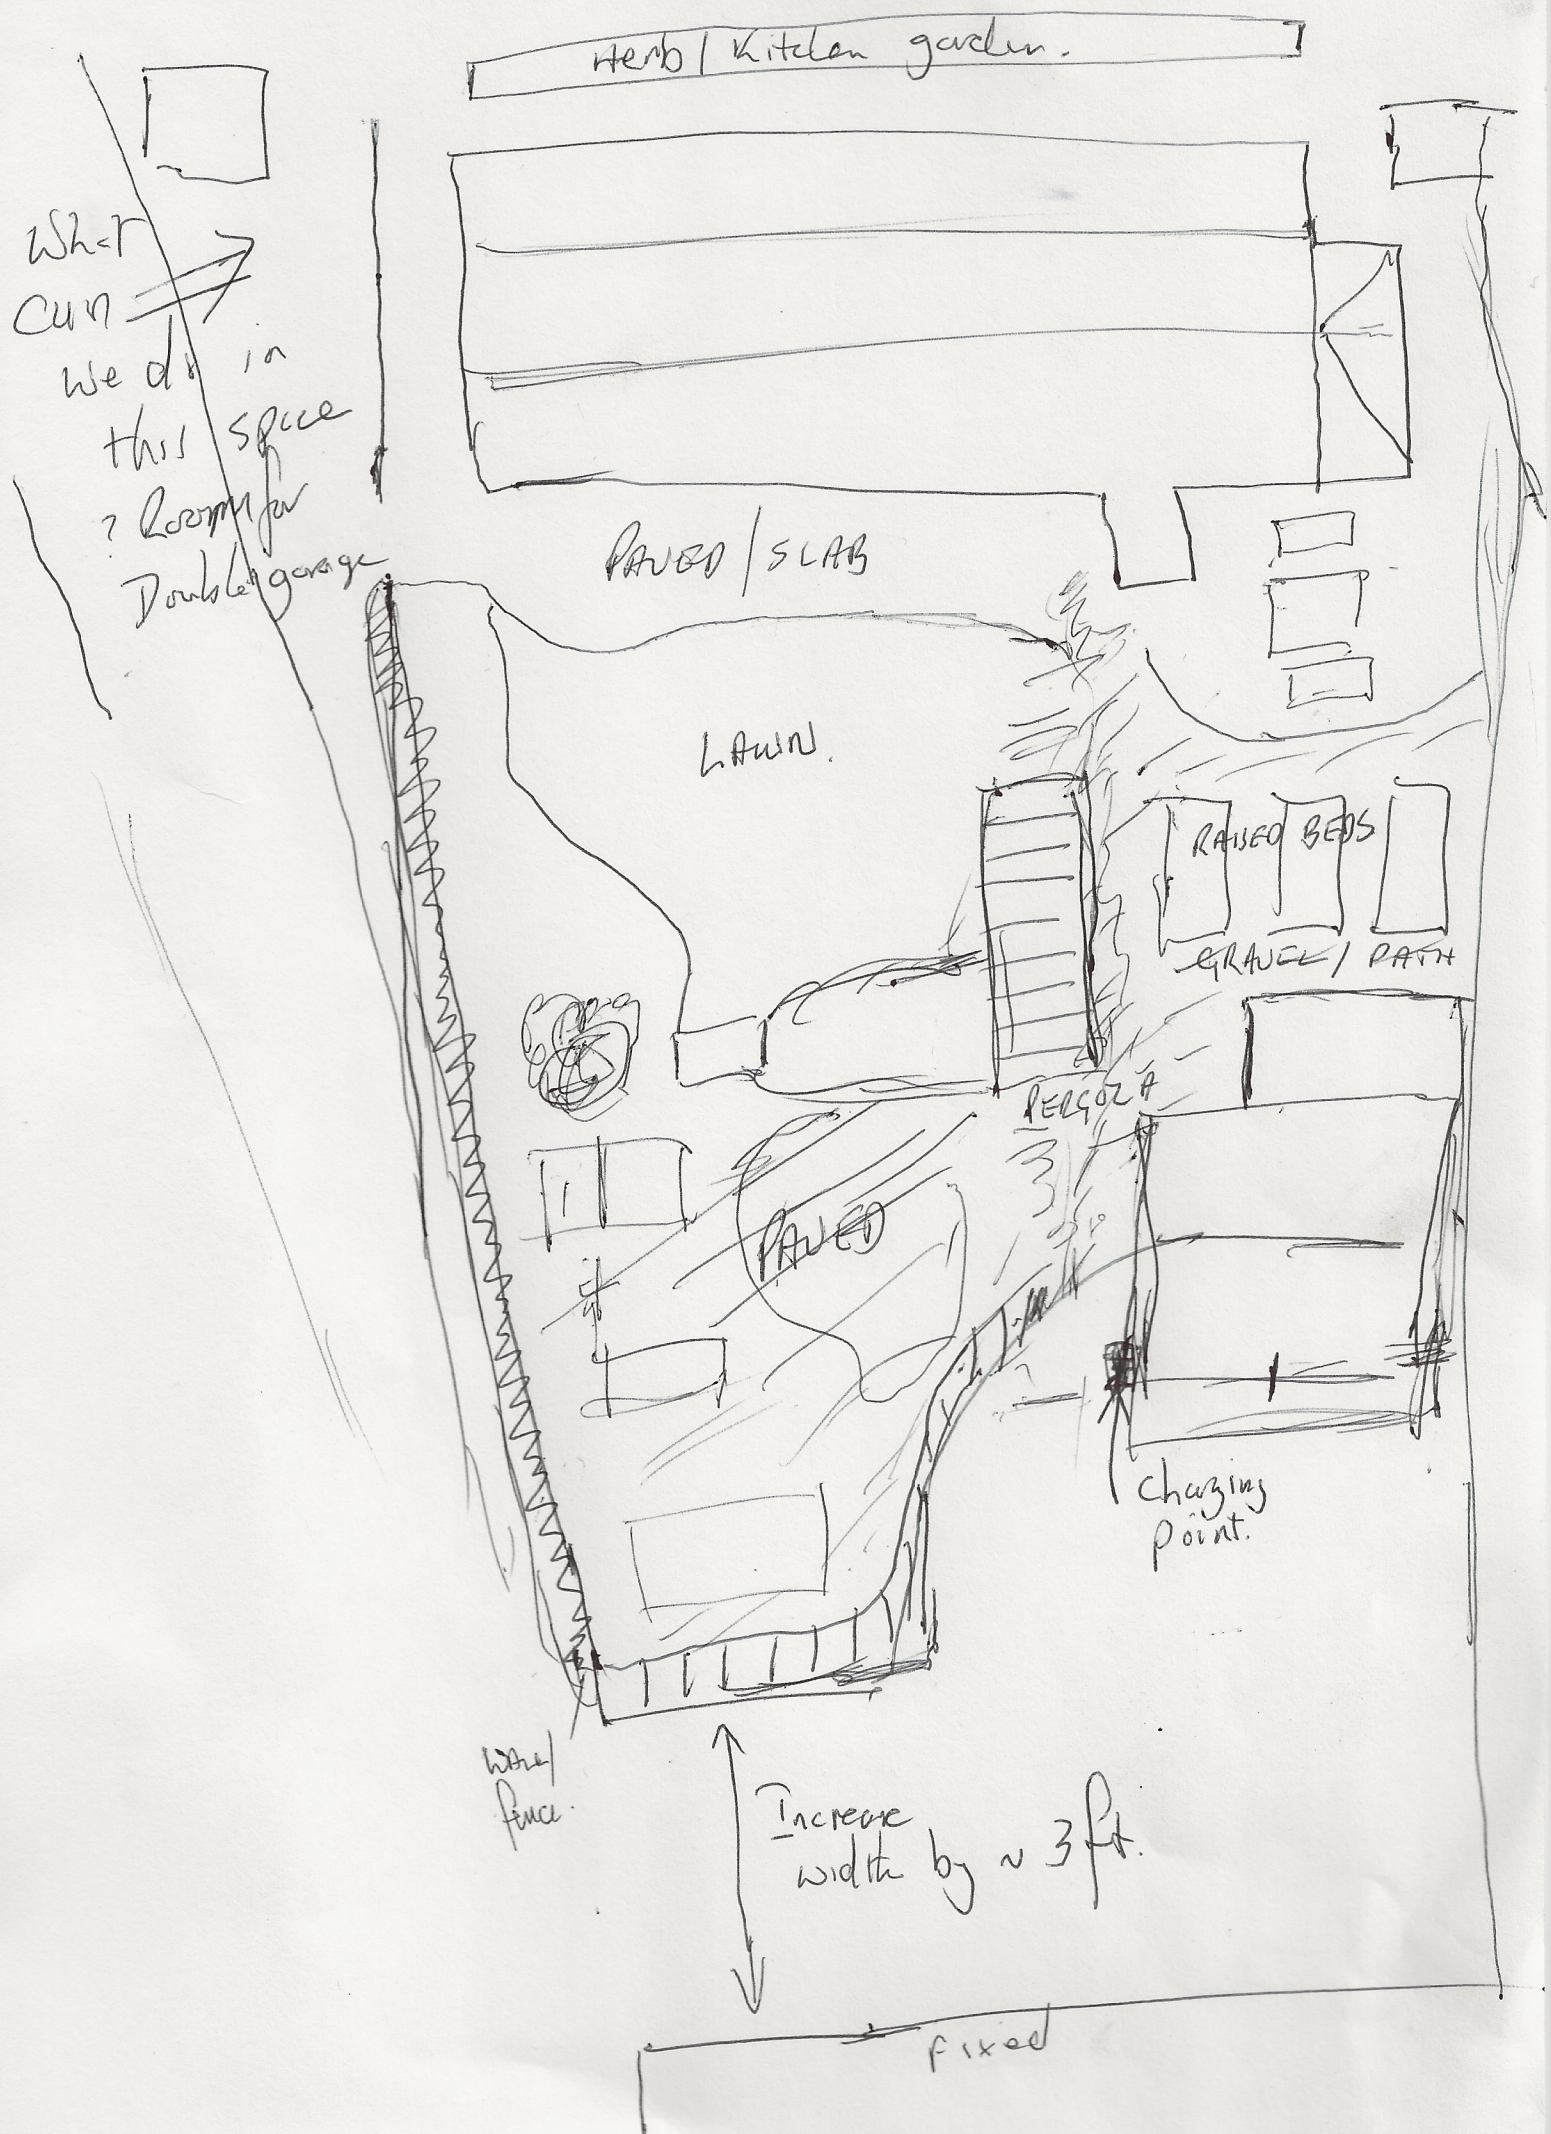 Herb / Kitchen garden.
What
can
we do in
this space
? Room for
Double garage
PAVED / SLAB
LAWN.
RAISED BEDS
GRAVEL / PATH
PERGOLA
PAVED
Charging
point.
Wall/
fence.
Increase
width by ~ 3 ft.
Fixed